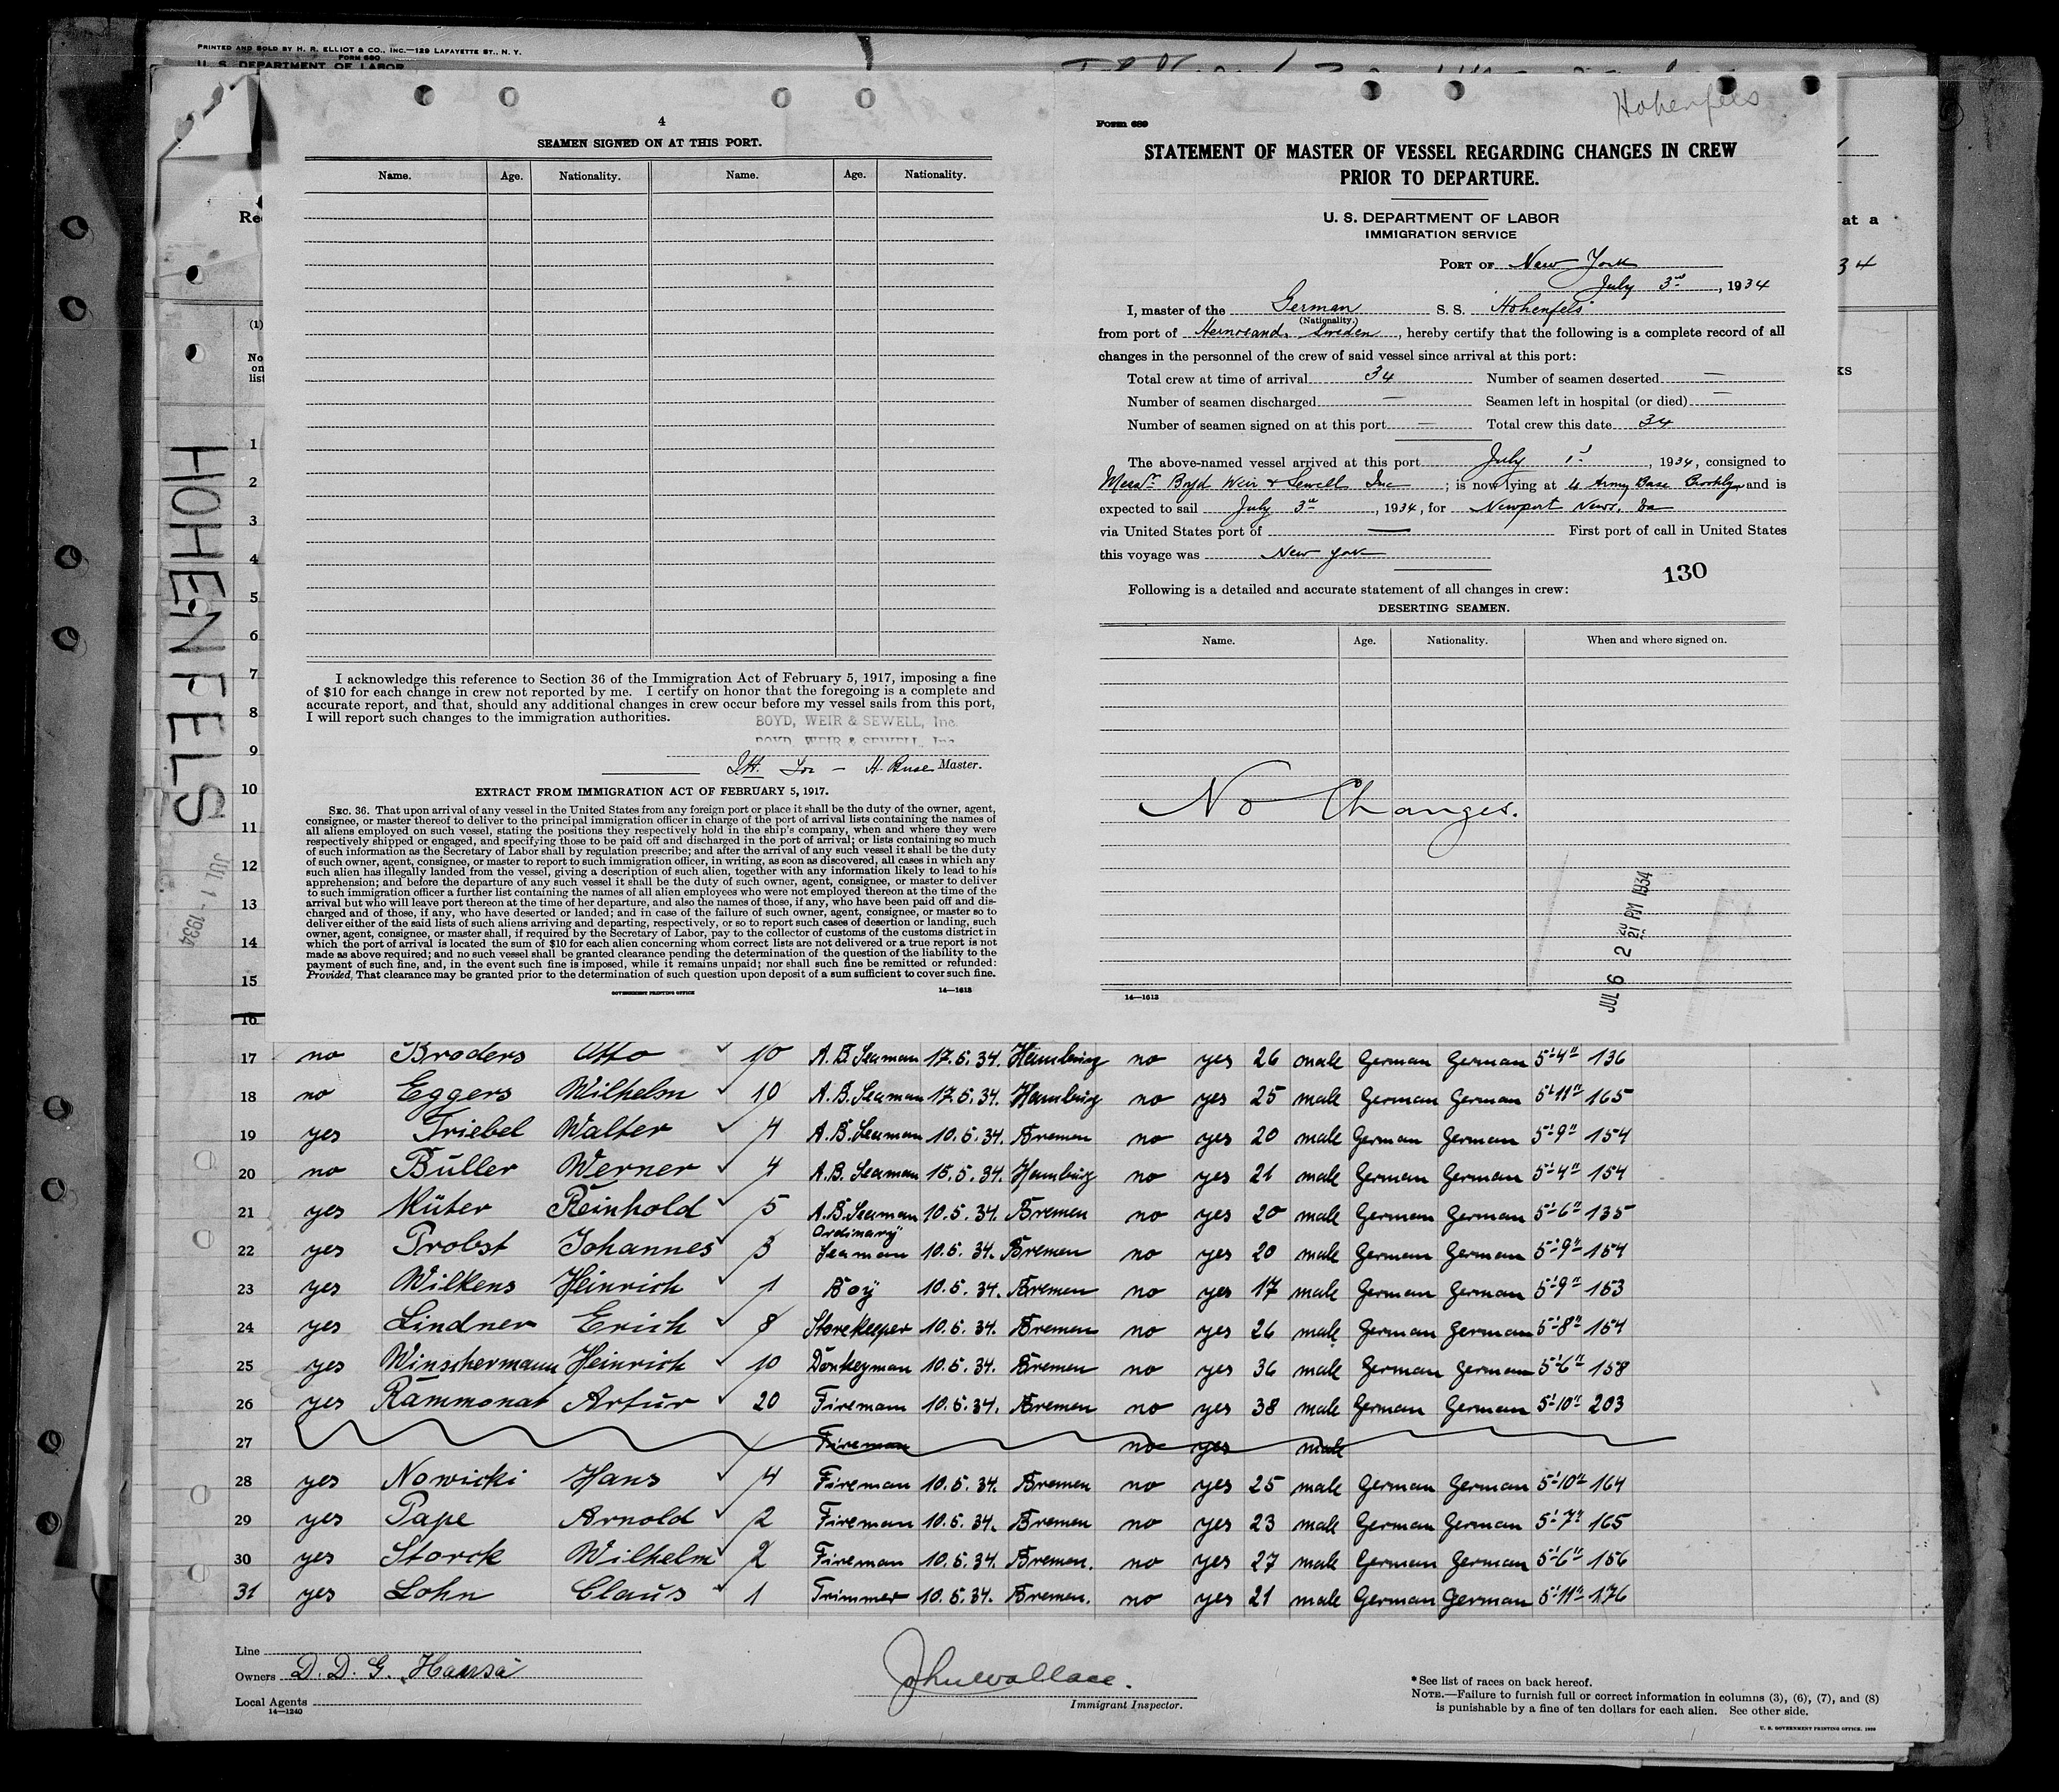 PRINTED AND SOLD BY H. R. ELLIOT & CO., INC.—129 LAFAYETTE ST., N. Y.
FORM 680
U. S. DEPARTMENT OF LABOR
Re
(1)
No
on
list
1
2
3
4
5
6
7
8
9
10
11
12
13
14
15
16
HOHENFELS
JUL 1 - 1934
4
SEAMEN SIGNED ON AT THIS PORT.
Name. Age. Nationality. Name. Age. Nationality.
I acknowledge this reference to Section 36 of the Immigration Act of February 5, 1917, imposing a fine
of $10 for each change in crew not reported by me. I certify on honor that the foregoing is a complete and
accurate report, and that, should any additional changes in crew occur before my vessel sails from this port,
I will report such changes to the immigration authorities.
BOYD, WEIR & SEWELL, Inc.
BOYD, WEIR & SEWELL, Inc.
H. Buse Master.
EXTRACT FROM IMMIGRATION ACT OF FEBRUARY 5, 1917.
SEC. 36. That upon arrival of any vessel in the United States from any foreign port or place it shall be the duty of the owner, agent,
consignee, or master thereof to deliver to the principal immigration officer in charge of the port of arrival lists containing the names of
all aliens employed on such vessel, stating the positions they respectively hold in the ship's company, when and where they were
respectively shipped or engaged, and specifying those to be paid off and discharged in the port of arrival; or lists containing so much
of such information as the Secretary of Labor shall by regulation prescribe; and after the arrival of any such vessel it shall be the duty
of such owner, agent, consignee, or master to report to such immigration officer, in writing, as soon as discovered, all cases in which any
such alien has illegally landed from the vessel, giving a description of such alien, together with any information likely to lead to his
apprehension; and before the departure of any such vessel it shall be the duty of such owner, agent, consignee, or master to deliver
to such immigration officer a further list containing the names of all alien employees who were not employed thereon at the time of the
arrival but who will leave port thereon at the time of her departure, and also the names of those, if any, who have been paid off and dis-
charged and of those, if any, who have deserted or landed; and in case of the failure of such owner, agent, consignee, or master so to
deliver either of the said lists of such aliens arriving and departing, respectively, or so to report such cases of desertion or landing, such
owner, agent, consignee, or master shall, if required by the Secretary of Labor, pay to the collector of customs of the customs district in
which the port of arrival is located the sum of $10 for each alien concerning whom correct lists are not delivered or a true report is not
made as above required; and no such vessel shall be granted clearance pending the determination of the question of the liability to the
payment of such fine, and, in the event such fine is imposed, while it remains unpaid; nor shall such fine be remitted or refunded:
Provided, That clearance may be granted prior to the determination of such question upon deposit of a sum sufficient to cover such fine.
GOVERNMENT PRINTING OFFICE 14—1613
Hohenfels
Form 689
STATEMENT OF MASTER OF VESSEL REGARDING CHANGES IN CREW
PRIOR TO DEPARTURE.
U. S. DEPARTMENT OF LABOR
IMMIGRATION SERVICE
PORT OF New York
July 3rd, 1934
I, master of the German S. S. Hohenfels
(Nationality.)
from port of Hernosand, Sweden, hereby certify that the following is a complete record of all
changes in the personnel of the crew of said vessel since arrival at this port:
Total crew at time of arrival 34 Number of seamen deserted —
Number of seamen discharged — Seamen left in hospital (or died) —
Number of seamen signed on at this port — Total crew this date 34
The above-named vessel arrived at this port July 1st, 1934, consigned to
Messrs Boyd Weir & Sewell Inc; is now lying at U Army Base Brooklyn and is
expected to sail July 3rd, 1934, for Newport News, Va
via United States port of — First port of call in United States
this voyage was New York
130
Following is a detailed and accurate statement of all changes in crew:
DESERTING SEAMEN.
Name. Age. Nationality. When and where signed on.
No Changes.
JUL 6 2 21 PM 1934
14—1613
at a
34
KS
17 no Broders Otto 10 A. B. Seaman 17. 5. 34. Hamburg no yes 26 male German German 5'4" 136
18 no Eggers Wilhelm 10 A. B. Seaman 17. 5. 34. Hamburg no yes 25 male German German 5'11" 165
19 yes Triebel Walter 4 A. B. Seaman 10. 5. 34. Bremen no yes 20 male German German 5'9" 154
20 no Büller Werner 4 A. B. Seaman 15. 5. 34. Hamburg no yes 21 male German German 5'4" 154
21 yes Müter Reinhold 5 A. B. Seaman 10. 5. 34. Bremen no yes 20 male German German 5'6" 135
22 yes Probst Johannes 3 Ordinary Seaman 10. 5. 34. Bremen no yes 20 male German German 5'9" 154
23 yes Wilkens Heinrich 1 Boy 10. 5. 34. Bremen no yes 17 male German German 5'9" 153
24 yes Lindner Erich 8 Storekeeper 10. 5. 34. Bremen no yes 26 male German German 5'8" 154
25 yes Winschermann Heinrich 10 Donkeyman 10. 5. 34. Bremen no yes 36 male German German 5'6" 158
26 yes Rammonat Artur 20 Fireman 10. 5. 34. Bremen no yes 38 male German German 5'10" 203
27 Fireman no yes male
28 yes Nowicki Hans 4 Fireman 10. 5. 34. Bremen no yes 25 male German German 5'10" 164
29 yes Pape Arnold 2 Fireman 10. 5. 34. Bremen no yes 23 male German German 5'7" 165
30 yes Storck Wilhelm 2 Fireman 10. 5. 34. Bremen. no yes 27 male German German 5'6" 156
31 yes Lohn Claus 1 Trimmer 10. 5. 34. Bremen. no yes 21 male German German 5'11" 176
Line
Owners D. D. G. Hansa
Local Agents
14—1240
John Wallace.
Immigrant Inspector.
* See list of races on back hereof.
NOTE.—Failure to furnish full or correct information in columns (3), (6), (7), and (8)
is punishable by a fine of ten dollars for each alien. See other side.
U. S. GOVERNMENT PRINTING OFFICE